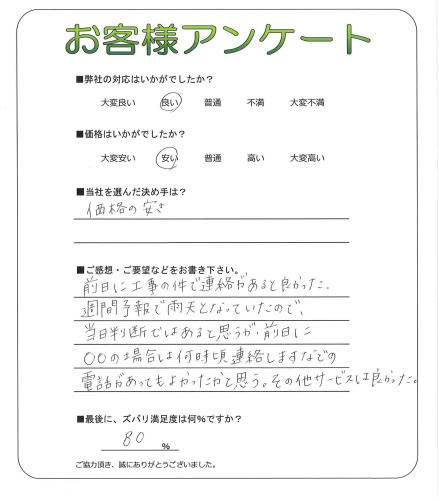 お客様アンケート
■弊社の対応はいかがでしたか？
大変良い 良い 普通 不満 大変不満
■価格はいかがでしたか？
大変安い 安い 普通 高い 大変高い
■当社を選んだ決め手は？
価格の安さ
■ご感想・ご要望などをお書き下さい。
前日に工事の件で連絡があると良かった．
週間予報で雨天となっていたので、
当日判断ではあると思うが、前日に
〇〇の場合は何時頃連絡しますなどの
電話があってもよかったかと思う。その他サービスは良かった。
■最後に、ズバリ満足度は何%ですか？
80 %
ご協力頂き、誠にありがとうございました。